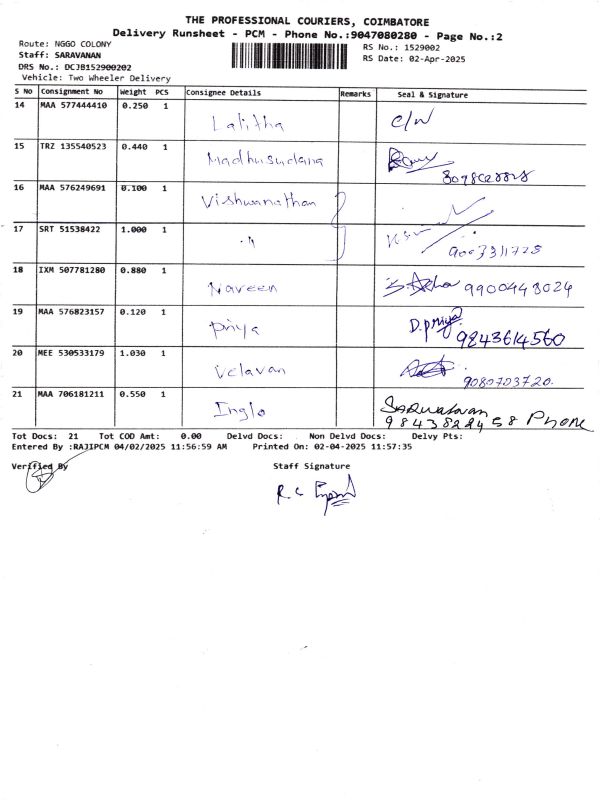 THE PROFESSIONAL COURIERS, COIMBATORE
Delivery Runsheet - PCM - Phone No.:9047080280 - Page No.:2
Route: NGGO COLONY
Staff: SARAVANAN
DRS No.: DCJB152900202
Vehicle: Two Wheeler Delivery
RS No.: 1529002
RS Date: 02-Apr-2025
S No Consignment No Weight PCS Consignee Details Remarks Seal & Signature
14 MAA 577444410 0.250 1 Lalitha C/N
15 TRZ 135540523 0.440 1 Madhusudana
16 MAA 576249691 0.100 1 Vishwanathan
17 SRT 51538422 1.000 1 " 9003311728
18 IXM 507781280 0.880 1 Naveen 9900443024
19 MAA 576823157 0.120 1 Priya D.Priya 9843614560
20 MEE 530533179 1.030 1 Velavan 9080703720
21 MAA 706181211 0.550 1 Inglo Phone
Tot Docs: 21 Tot COD Amt: 0.00 Delvd Docs: Non Delvd Docs: Delvy Pts:
Entered By :RAJIPCM 04/02/2025 11:56:59 AM Printed On: 02-04-2025 11:57:35
Verified By Staff Signature